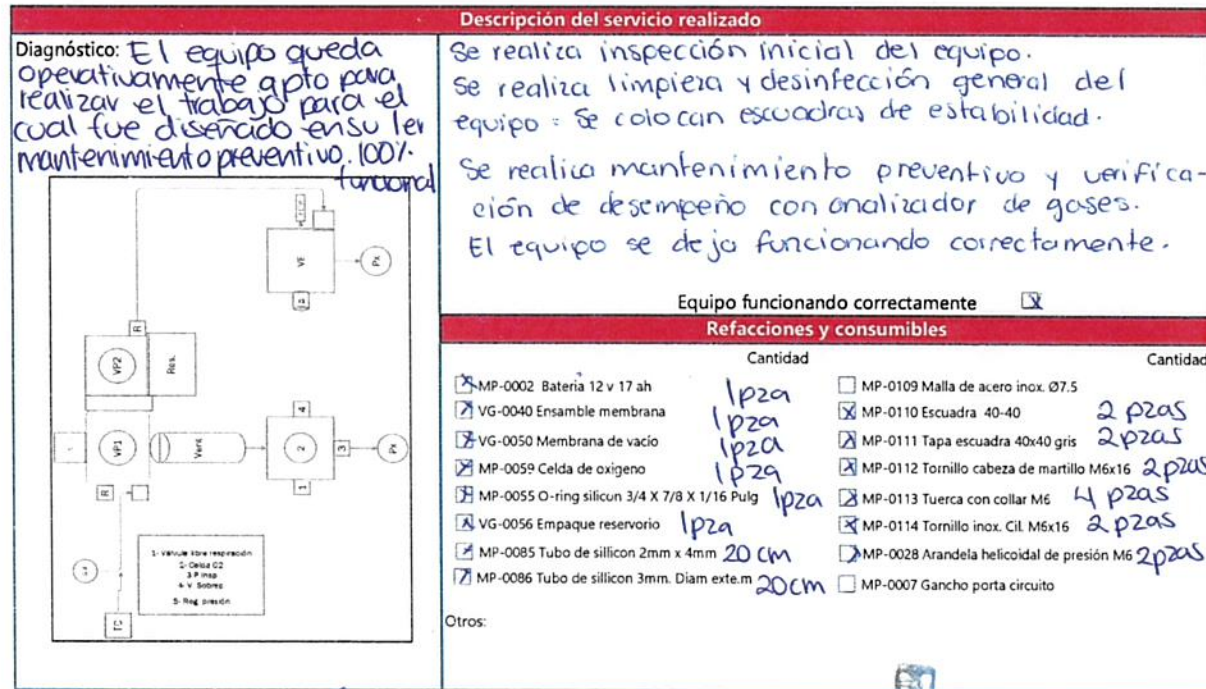 Descripción del servicio realizado
Diagnóstico: El equipo queda
operativamente apto para
realizar el trabajo para el
cual fue diseñado en su 1er
mantenimiento preventivo. 100%
funcional
VF
Px
R
VP2
Res.
1
VP1
Vent
4
2
3
1
Px
R
1- Válvula libre respiración
2- Celda O2
3 P insp
4- V. Sobrep
5- Reg. presión
TC
Se realiza inspección inicial del equipo.
Se realiza limpieza y desinfección general del
equipo. Se colocan escuadras de estabilidad.
Se realiza mantenimiento preventivo y verifica-
ción de desempeño con analizador de gases.
El equipo se deja funcionando correctamente.
Equipo funcionando correctamente X
Refacciones y consumibles
Cantidad
MP-0002 Bateria 12 v 17 ah 1pza
VG-0040 Ensamble membrana 1pza
VG-0050 Membrana de vacío 1pza
MP-0059 Celda de oxigeno 1pza
MP-0055 O-ring silicon 3/4 X 7/8 X 1/16 Pulg 1pza
VG-0056 Empaque reservorio 1pza
MP-0085 Tubo de sillicon 2mm x 4mm 20 cm
MP-0086 Tubo de sillicon 3mm. Diam exte.m 20cm
Cantidad
MP-0109 Malla de acero inox. Ø7.5
MP-0110 Escuadra 40-40 2 pzas
MP-0111 Tapa escuadra 40x40 gris 2pzas
MP-0112 Tornillo cabeza de martillo M6x16 2pzas
MP-0113 Tuerca con collar M6 4 pzas
MP-0114 Tornillo inox. Cil. M6x16 2 pzas
MP-0028 Arandela helicoidal de presión M6 2pzas
MP-0007 Gancho porta circuito
Otros: